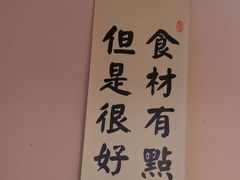 食材有點
但是很好